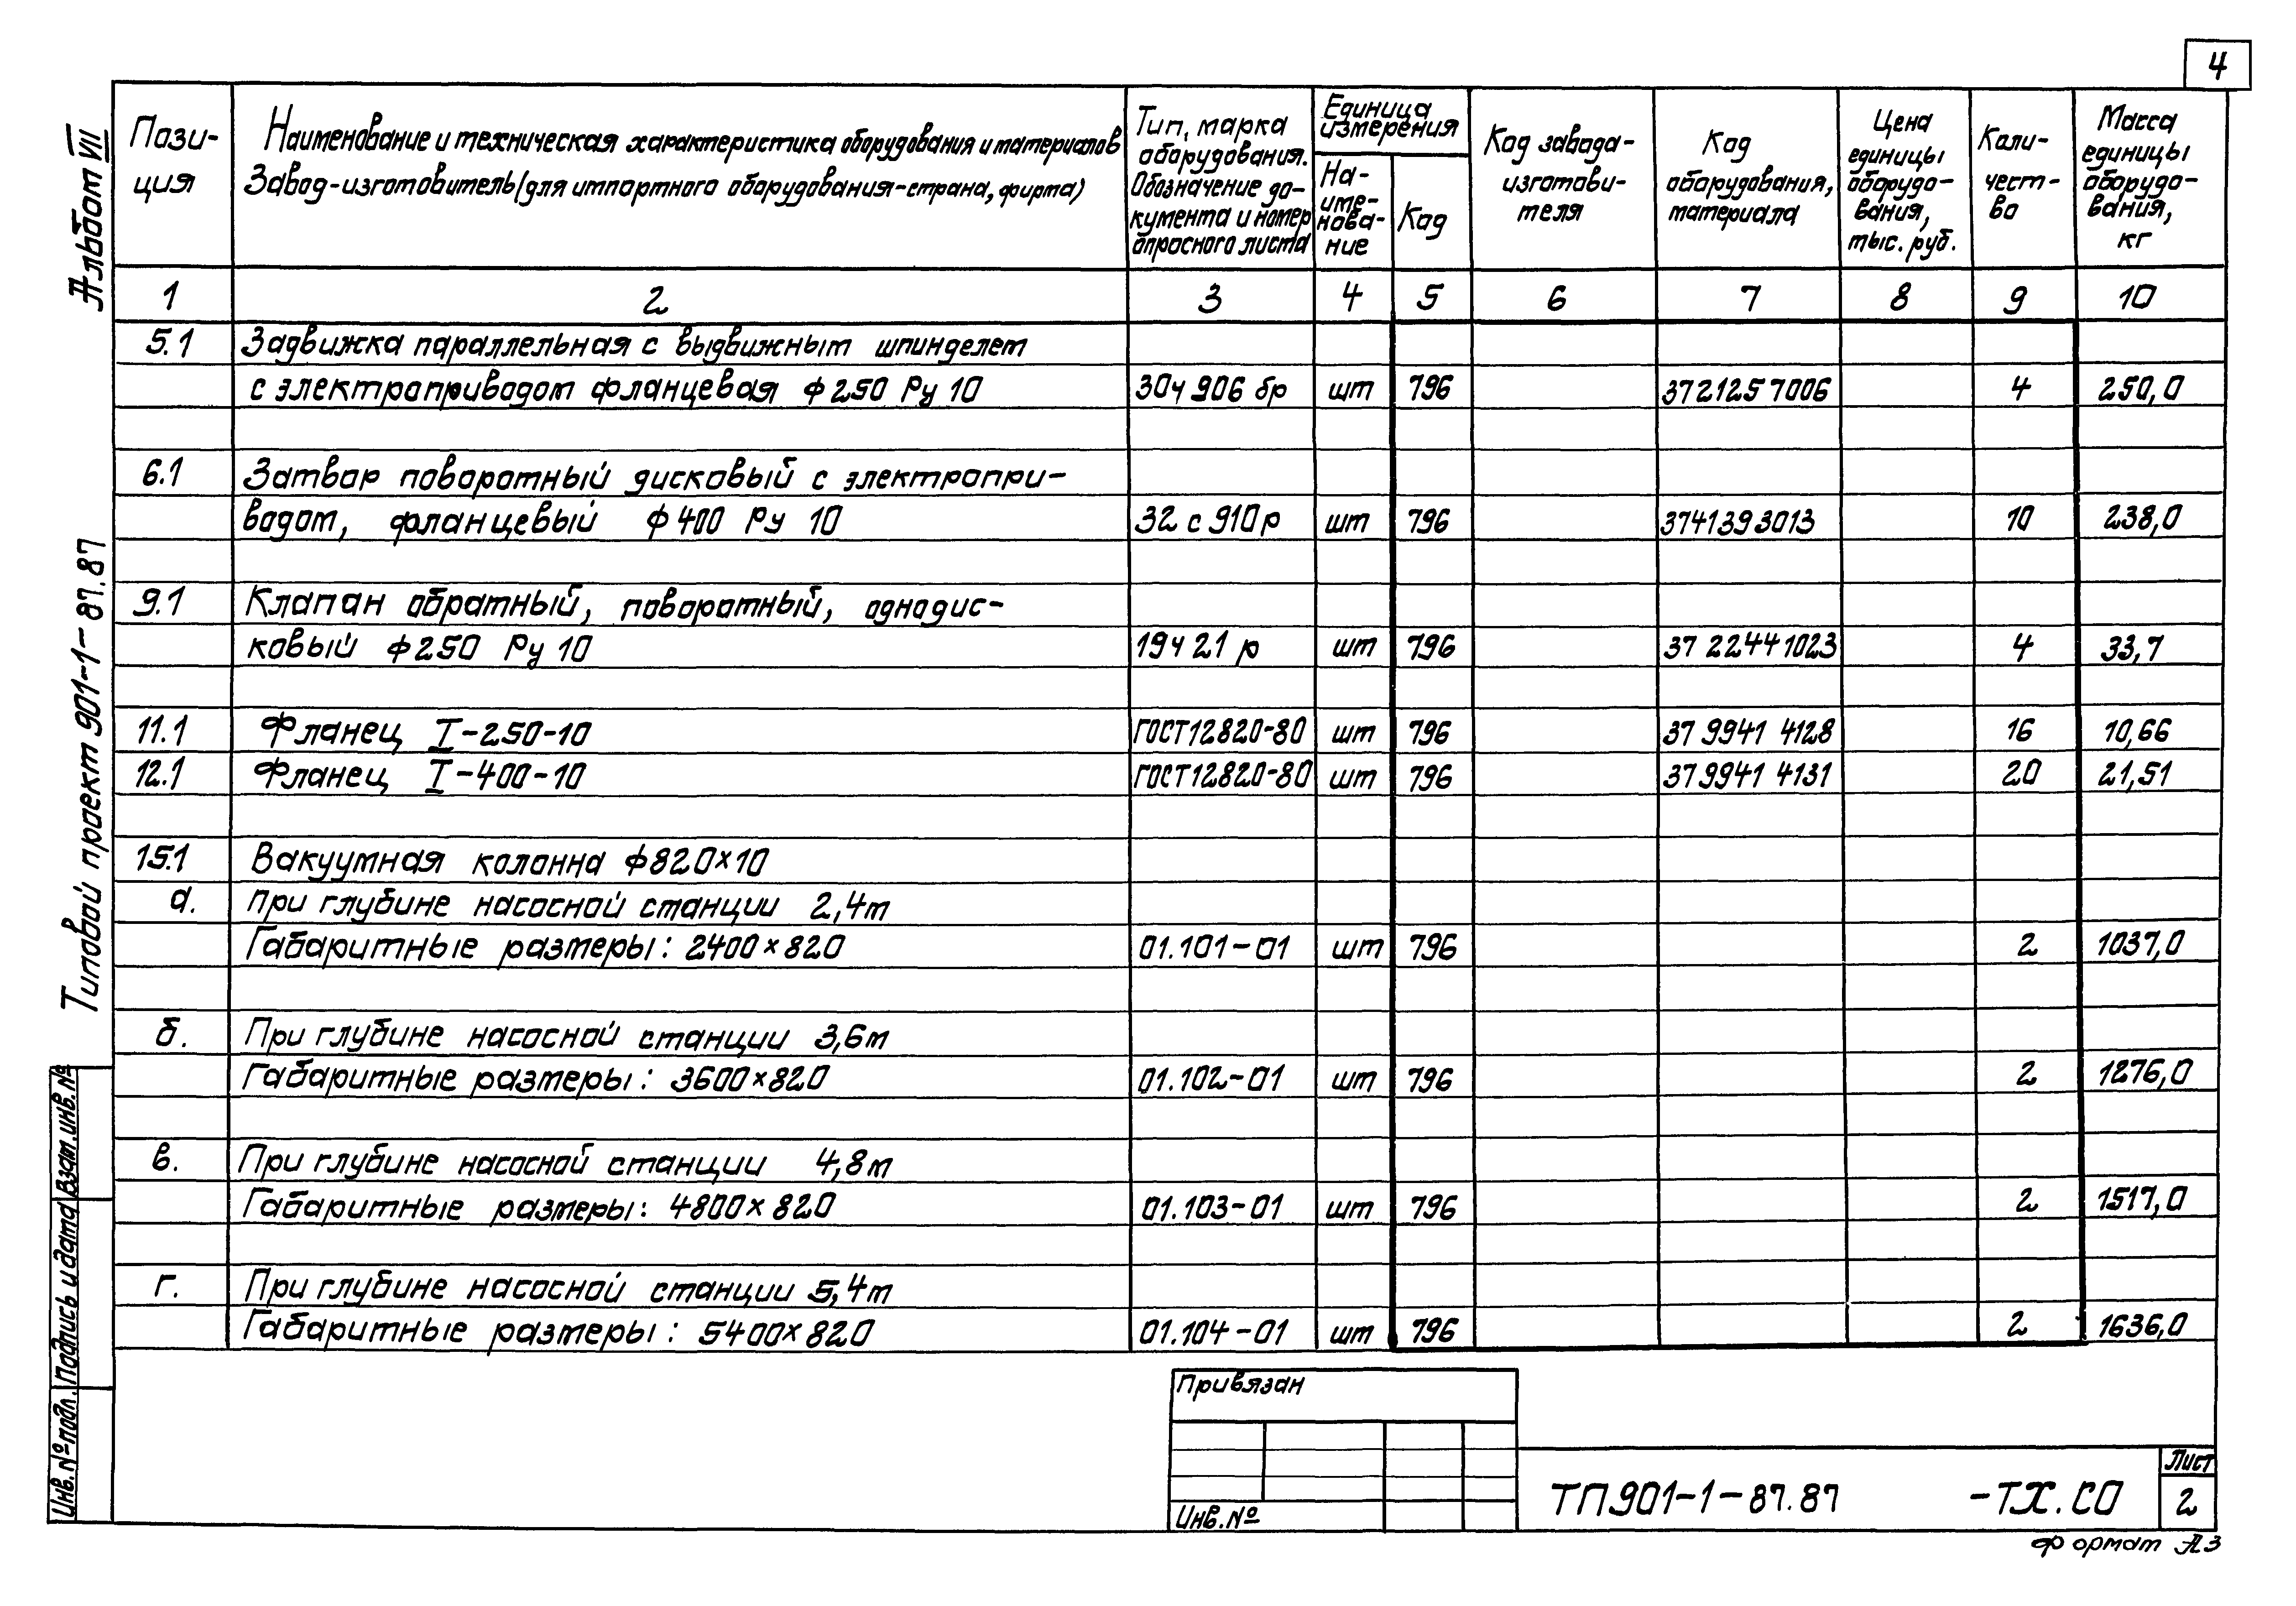 4
Альбом VII
Типовой проект 901-1-87.87
Пози-
ция
Наименование и техническая характеристика оборудования и материалов
Завод-изготовитель (для импортного оборудования-страна, фирма)
Тип, марка
оборудования.
Обозначение до-
кумента и номер
опросного листа
Единица
измерения
На-
име-
нова-
ние
Код
Код завода-
изготови-
теля
Код
оборудования,
материала
Цена
единицы
оборудо-
вания,
тыс. руб.
Коли-
чест-
во
Масса
единицы
оборудо-
вания,
кг
1 2 3 4 5 6 7 8 9 10
5.1 Задвижка параллельная с выдвижным шпинделем
с электроприводом фланцевая ф 250 Ру 10 30ч 906 бр шт 796 3721257006 4 250,0
6.1 Затвор поворотный дисковый с электропри-
водом, фланцевый ф 400 Ру 10 32 с 910 р шт 796 3741393013 10 238,0
9.1 Клапан обратный, поворотный, однодис-
ковый ф 250 Ру 10 19ч 21 р шт 796 37 22441023 4 33,7
11.1 Фланец I-250-10 ГОСТ 12820-80 шт 796 37 9941 4128 16 10,66
12.1 Фланец I-400-10 ГОСТ 12820-80 шт 796 37 9941 4131 20 21,51
15.1 Вакуумная колонна ф 820×10
а. при глубине насосной станции 2,4м
Габаритные размеры: 2400×820 01.101-01 шт 796 2 1037,0
б. При глубине насосной станции 3,6м
Габаритные размеры: 3600×820 01.102-01 шт 796 2 1276,0
в. При глубине насосной станции 4,8м
Габаритные размеры: 4800×820 01.103-01 шт 796 2 1517,0
г. При глубине насосной станции 5,4м
Габаритные размеры: 5400×820 01.104-01 шт 796 2 1636,0
Взам. инв. №
Подпись и дата
Инв. № подл.
Привязан
Инв. №
ТП 901-1-87.87 -ТХ.СО
Лист
2
формат А3